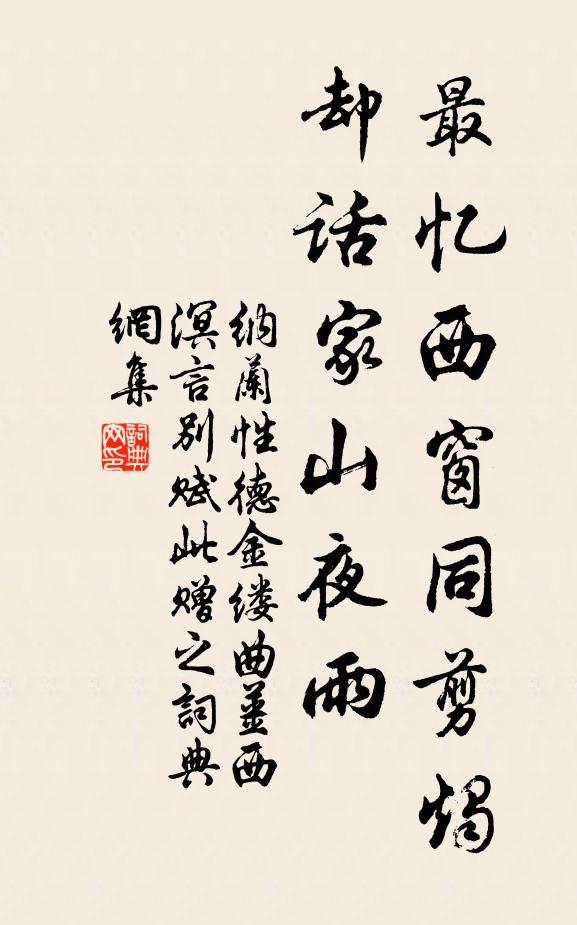 最忆西窗同剪燭
却话家山夜雨
納蘭性德金缕曲薑西
溟言别赋此贈之詞典
網集
詞典
网印